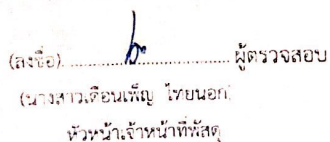 (ลงชื่อ)........................ผู้ตรวจสอบ
(นางสาวเดือนเพ็ญ ไทยนอก)
หัวหน้าเจ้าหน้าที่พัสดุ